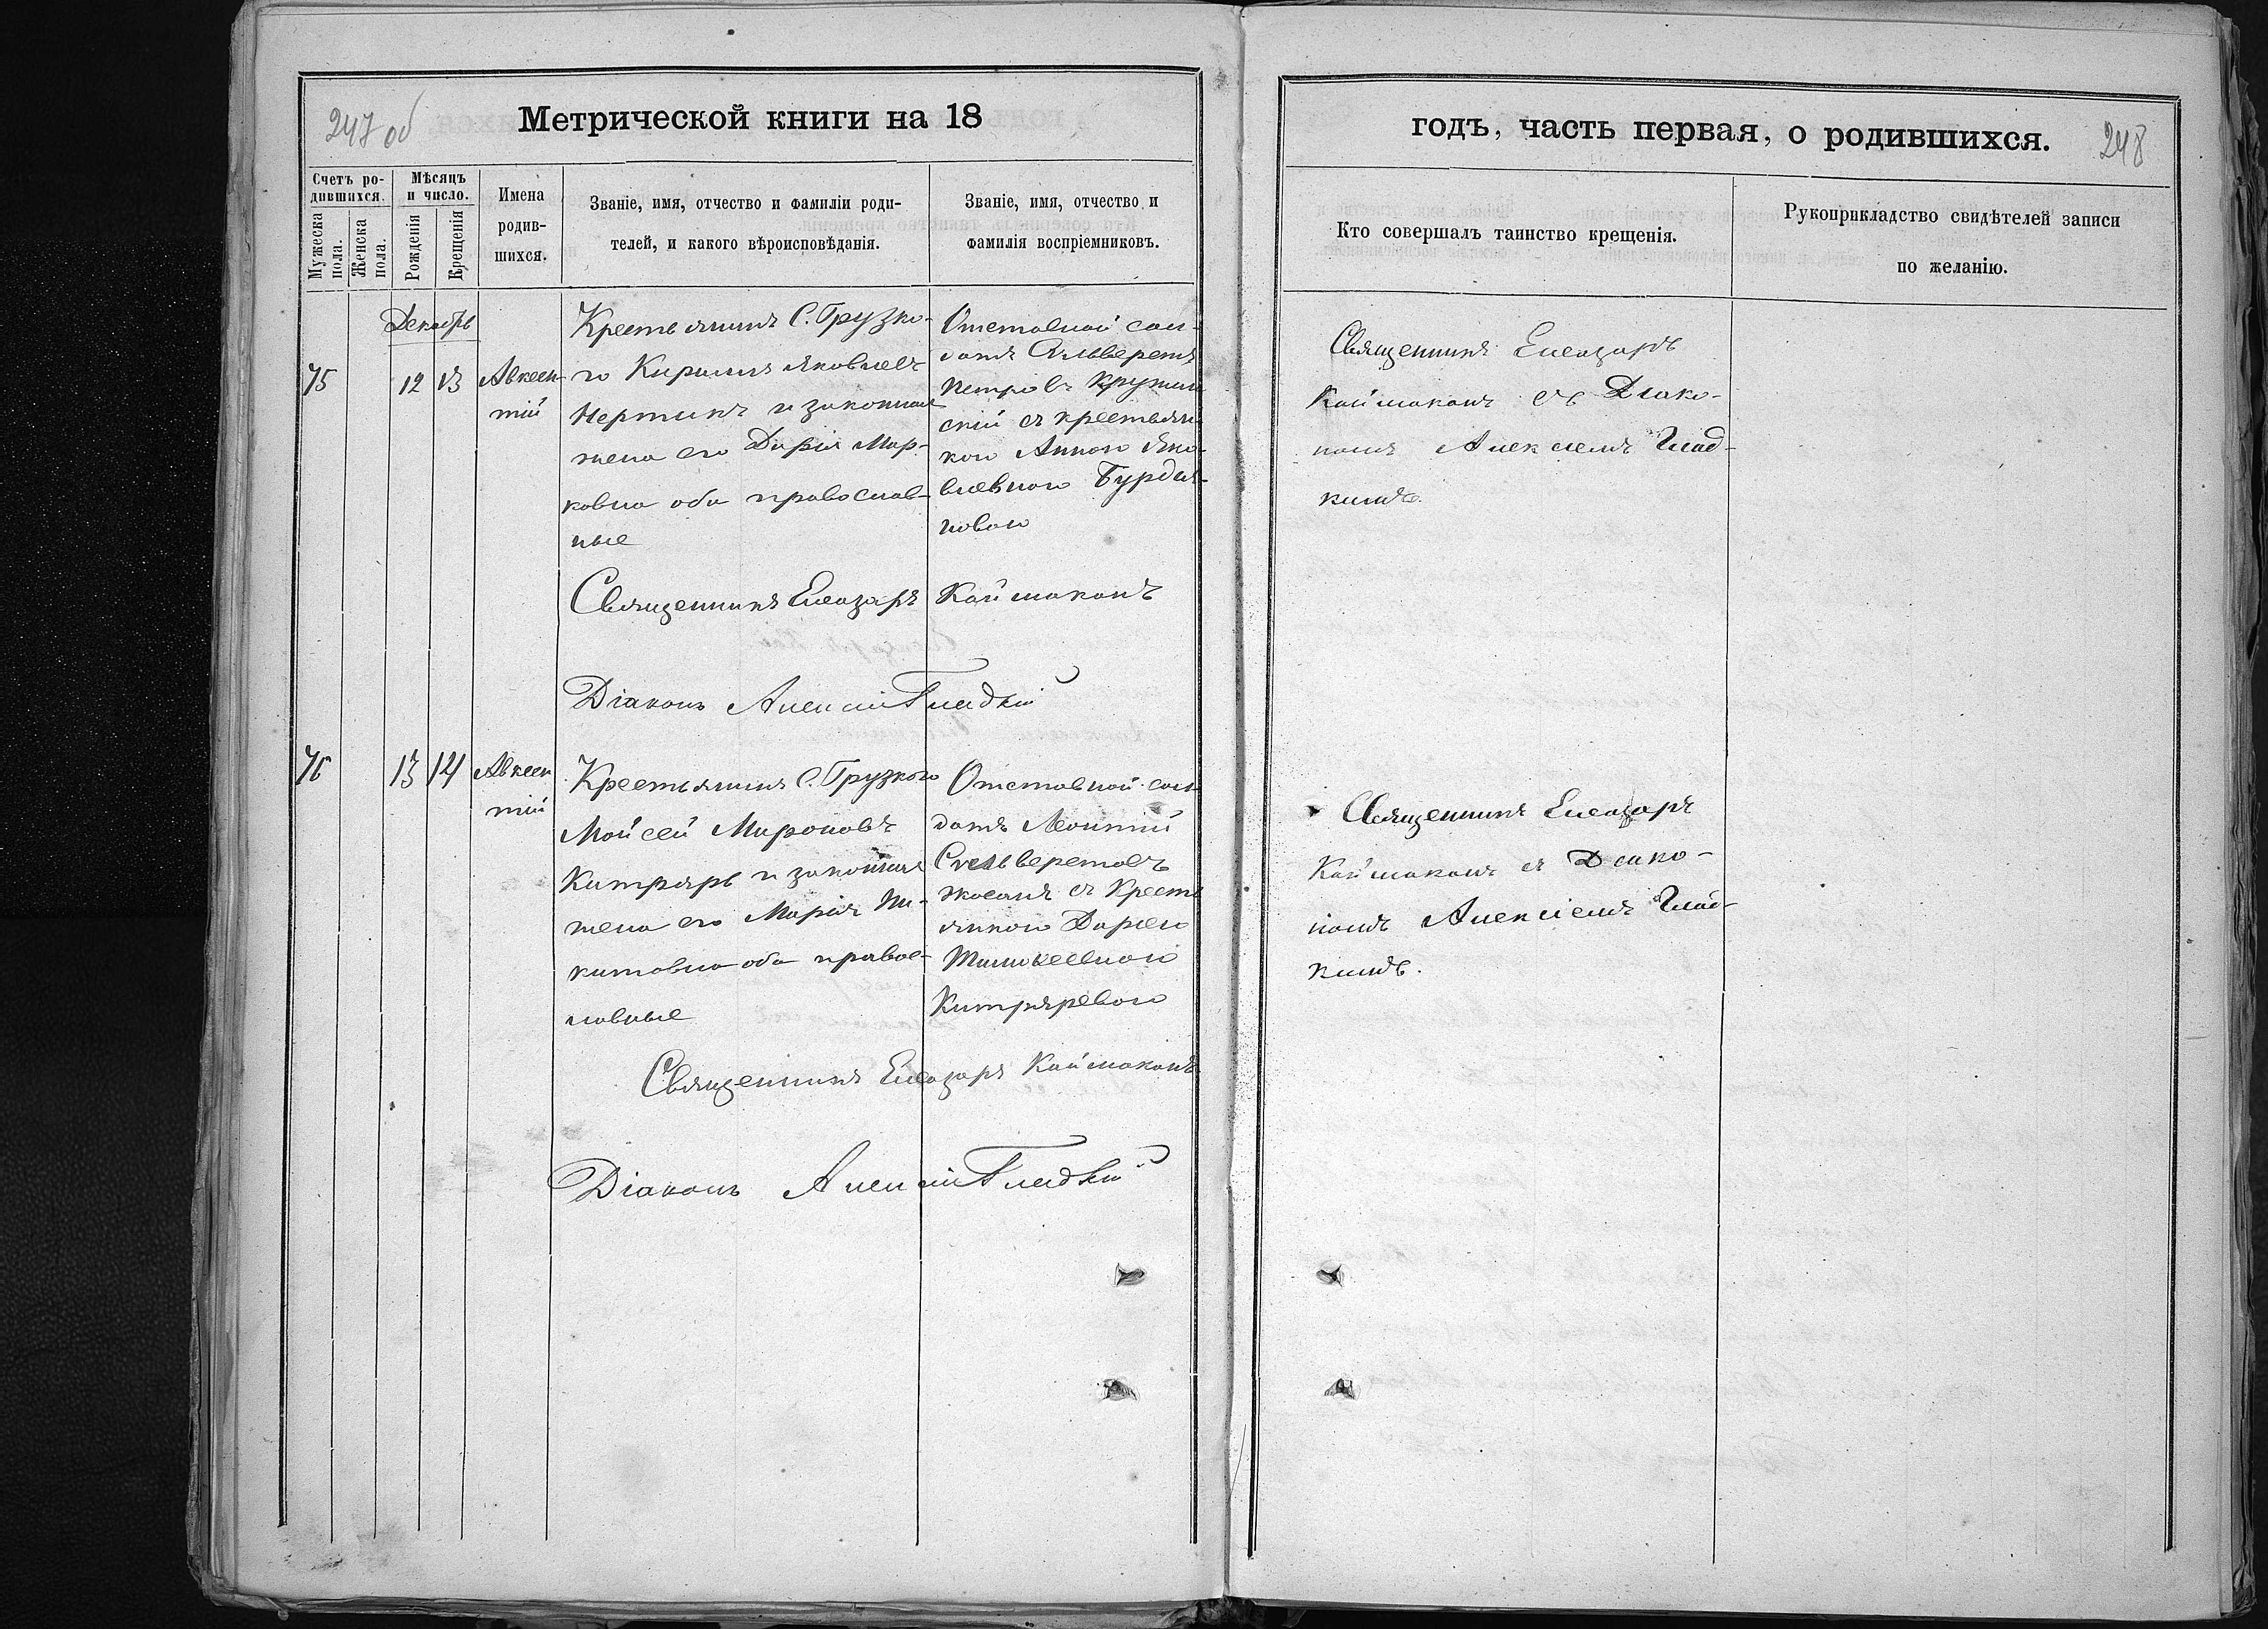 247 об
Метрической книги на 18
Счетъ ро-
дившихся.
Мужеска
пола.
Женска
пола.
Мѣсяцъ
и число.
Рожденія
Крещенія
Имена
родив-
шихся.
Званіе, имя, отчество и фамиліи роди-
телей, и какого вѣроисповѣданія.
Званіе, имя, отчество и
фамилія воспріемниковъ.
Декабрь
75
12 13
Авксен-
тій
Крестьянинъ С. Грузко-
го Кириллъ Яковлевъ
и законная
жена его Дарія Мар-
ковна оба православ-
ные
Отставной сол-
датъ
Петровъ
скій съ крестьян-
кою Анною Яко-
влевною Бурдья-
новою
Священникъ Елеазаръ Каймаканъ
Діаконъ Алексій Гладкій
76
13 14
Авксен
тій
Крестьянинъ С. Грузкого
Мойсей Мироновъ
Китраръ и законная
жена его Марія Ни-
китовна оба правос-
лавные
Отставной сол-
датъ Леонтій
Сильверстовъ
съ Кресть
янкою Дарією
Тимофеевною
Китраревою
Священникъ Елеазаръ Каймаканъ
Діаконъ Алексій Гладкій
годъ, часть первая, о родившихся.
248
Кто совершалъ таинство крещенія.
Рукоприкладство свидѣтелей записи
по желанію.
Священникъ Елеазаръ
Каймаканъ съ Діако-
номъ Алексіемъ Глад-
кимъ.
Священникъ Елеазаръ
Каймаканъ съ Діако-
номъ Алексіемъ Глад-
кимъ.